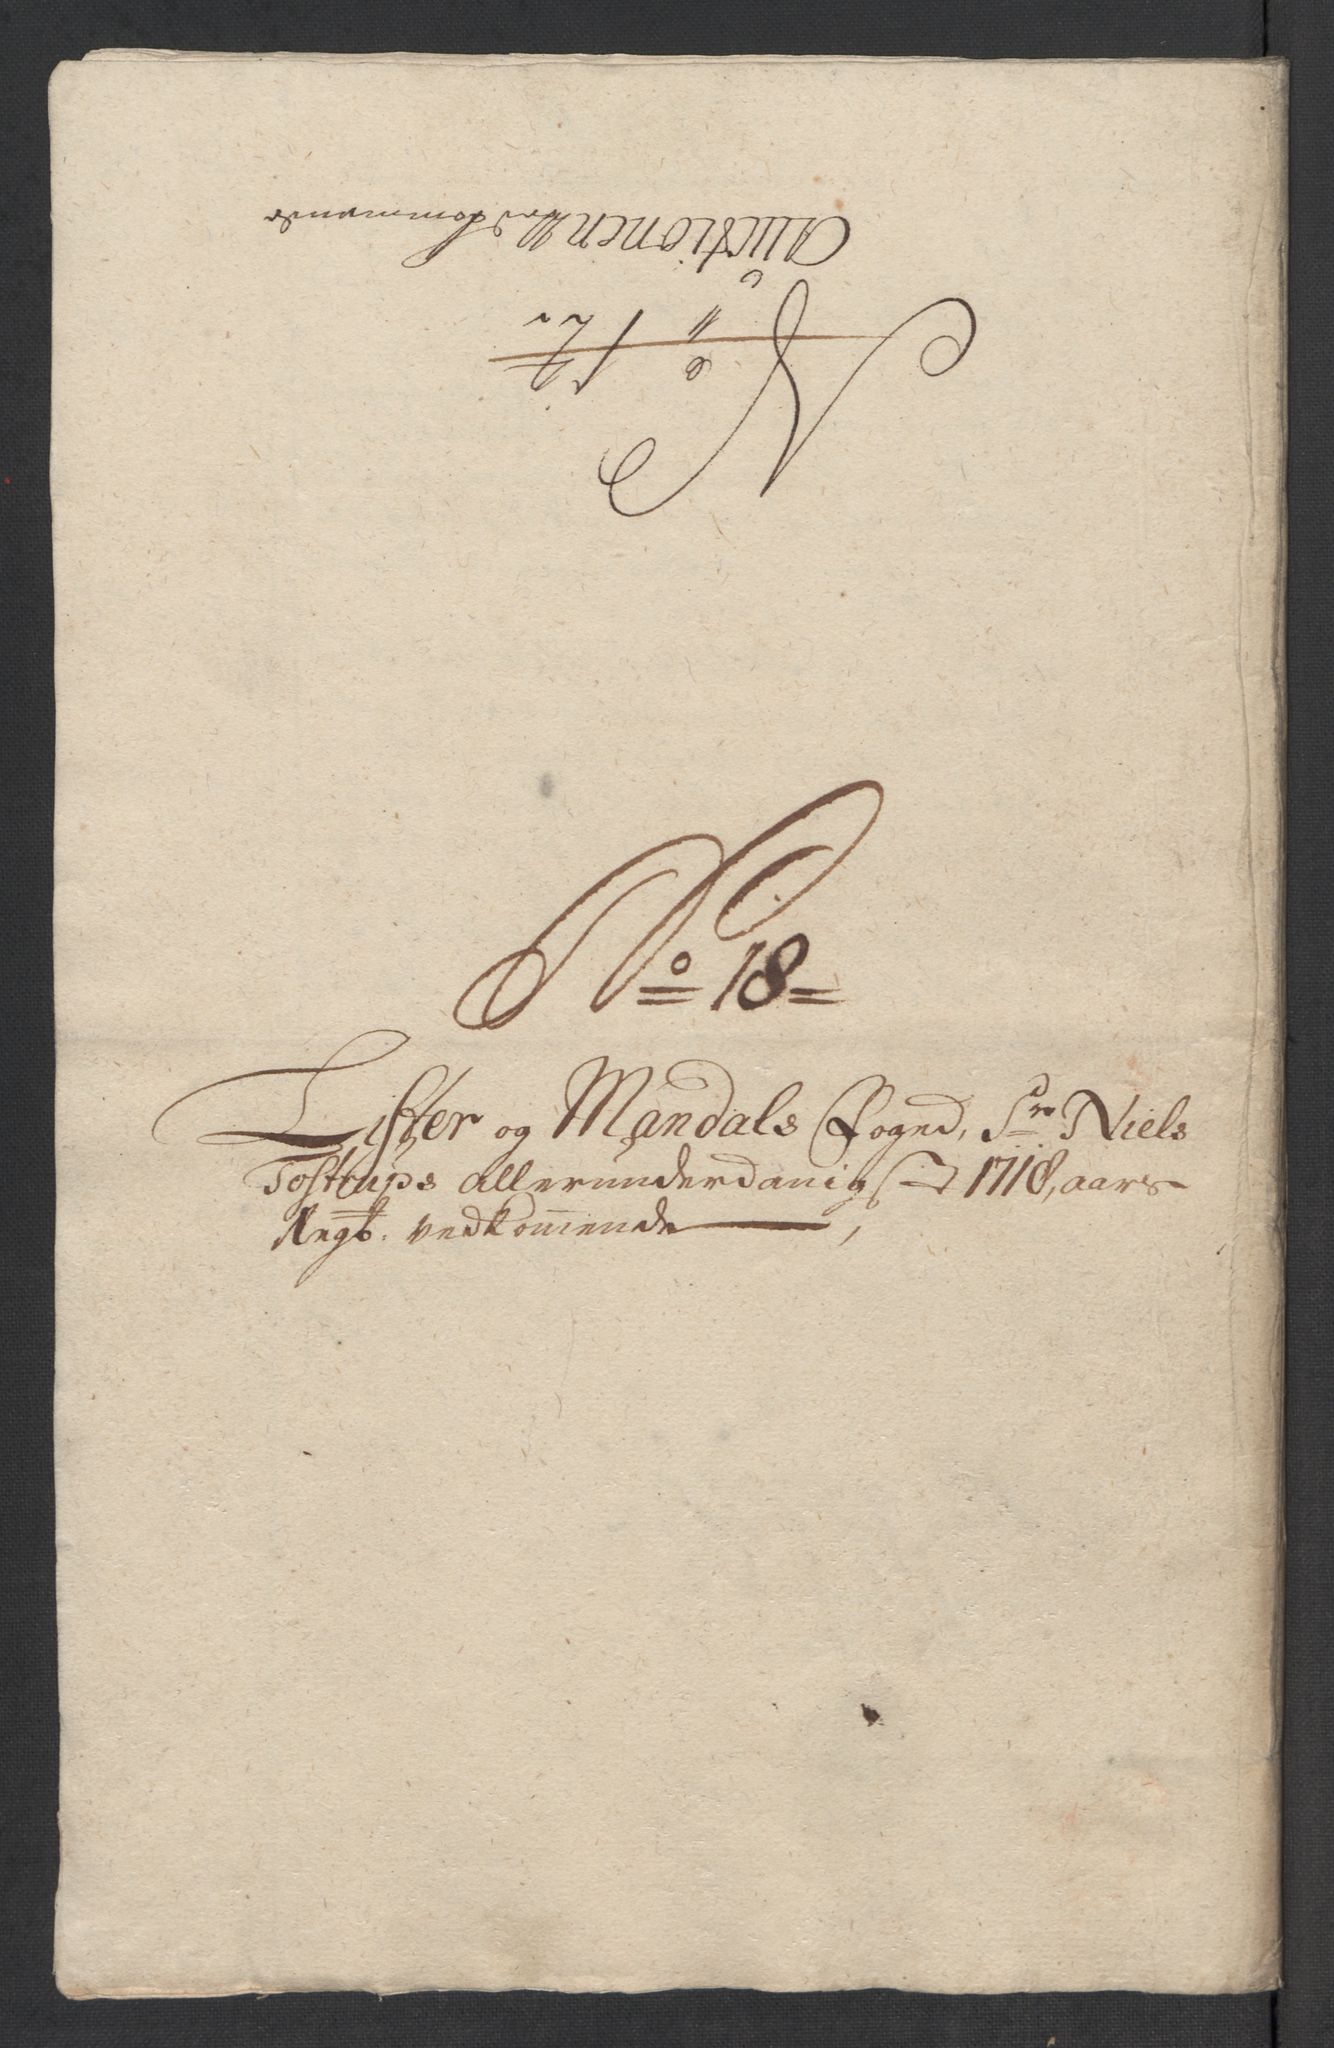 Auctionen Vedkommende
No 18
Lister og Mandals Fogd, Sr Niels
Tostrups allerunderdanigste 1718, aars
Regb. vedkommende